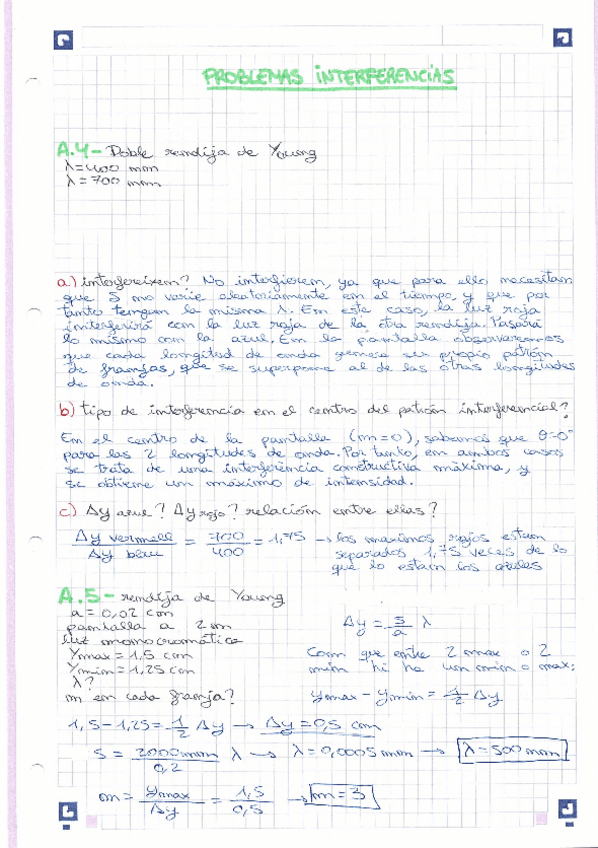 PROBLEMAS INTERFERENCIAS
A.4- Doble rendija de Young
λ=400 nm
λ=700 nm
a) interfereixen? No interfieren, ya que para ello necesitan
que δ no varíe aleatoriamente en el tiempo, y que por
tanto tengan la misma λ. En este caso, la luz roja
interferirá con la luz roja de la otra rendija. Pasará
lo mismo con la azul. En la pantalla observaremos
que cada longitud de onda genera su propio patrón
de franjas, que se superpone al de las otras longitudes
de onda.
b) tipo de interferencia en el centro del patrón interferencial?
En el centro de la pantalla (m=0), sabemos que θ=0°
para las 2 longitudes de onda. Por tanto, en ambos casos
se trata de una interferencia constructiva máxima, y
se obtiene un máximo de intensidad.
c) Δy azul? Δy rojo? relación entre ellas?
Δy vermell / Δy blau = 700 / 400 = 1,75 → los máximos rojos estan
separados 1,75 veces de lo
que lo estan los azules
A.5- rendija de Young
a = 0,02 cm
pantalla a 2m
luz monocromática
Ymax = 1,5 cm
Ymin = 1,25 cm
λ?
m en cada franja?
Δy = s/a λ
Com que entre 2 max o 2
min hi ha un min o max:
ymax - ymin = 1/2 Δy
1,5-1,25 = 1/2 Δy → Δy = 0,5 cm
5 = 2000mm / 0,2 λ → λ = 0,0005 mm → λ = 500 nm
m = Ymax / Δy = 1,5 / 0,5 → m = 3